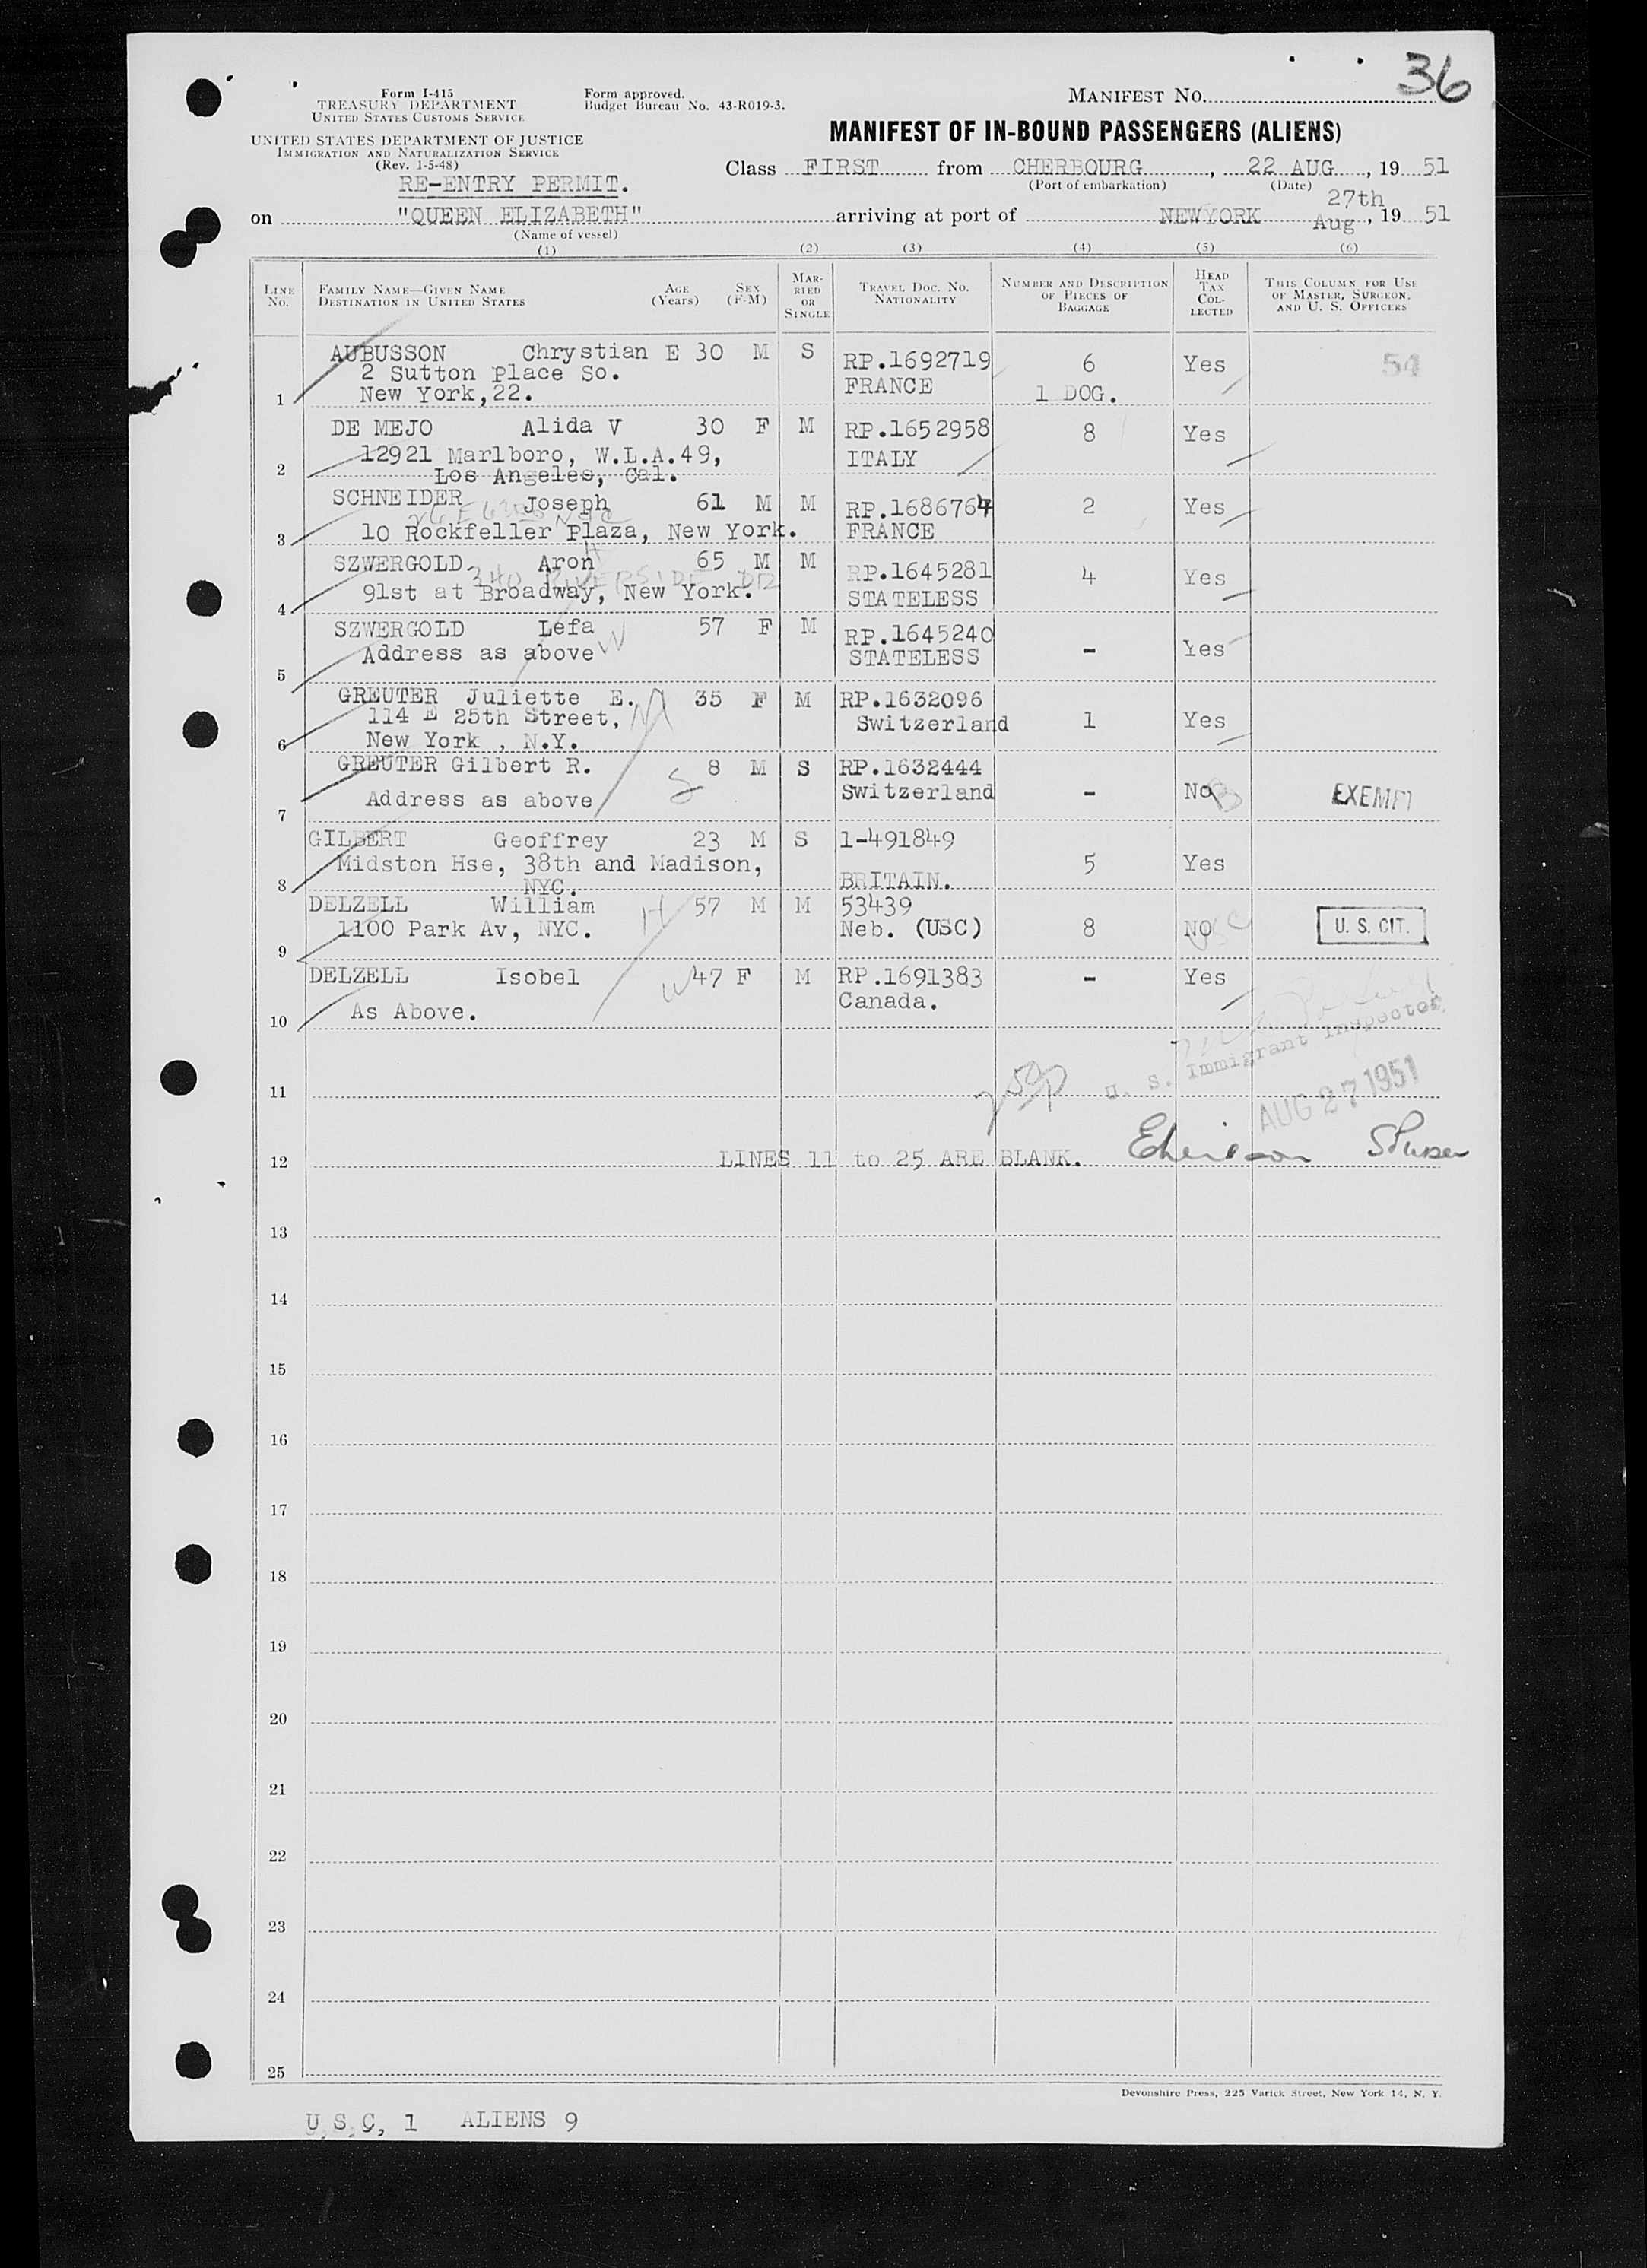 36
Form I-415
TREASURY DEPARTMENT
UNITED STATES CUSTOMS SERVICE
Form approved.
Budget Bureau No. 43-R019-3.
MANIFEST No.
UNITED STATES DEPARTMENT OF JUSTICE
IMMIGRATION AND NATURALIZATION SERVICE
(Rev. 1-5-48)
MANIFEST OF IN-BOUND PASSENGERS (ALIENS)
RE-ENTRY PERMIT.
Class FIRST from CHERBOURG, 22 AUG, 19 51
(Port of embarkation) (Date)
27th
on "QUEEN ELIZABETH" arriving at port of NEWYORK Aug, 19 51
(Name of vessel)
(1) (2) (3) (4) (5) (6)
LINE No. FAMILY NAME—GIVEN NAME DESTINATION IN UNITED STATES AGE (Years) SEX (F-M) MARRIED OR SINGLE TRAVEL DOC. NO. NATIONALITY NUMBER AND DESCRIPTION OF PIECES OF BAGGAGE HEAD TAX COLLECTED THIS COLUMN FOR USE OF MASTER, SURGEON, AND U. S. OFFICERS
AUBUSSON Chrystian E 30 M S RP.1692719 6 Yes 54
2 Sutton Place So. FRANCE
1 New York,22. 1 DOG.
DE MEJO Alida V 30 F M RP.1652958 8 Yes
12921 Marlboro, W.L.A.49, ITALY
2 Los Angeles, Cal.
SCHNEIDER Joseph 61 M M RP.1686764 2 Yes
3 10 Rockfeller Plaza, New York. FRANCE
SZWERGOLD Aron H 65 M M RP.1645281 4 Yes
340 RIVERSIDE DR
4 91st at Broadway, New York. STATELESS
SZWERGOLD Lefa 57 F M RP.1645240 - Yes
5 Address as above W STATELESS
GREUTER Juliette E. M 35 F M RP.1632096
114 E 25th Street, Switzerland 1 Yes
6 New York , N.Y.
GREUTER Gilbert R. S 8 M S RP.1632444
7 Address as above Switzerland - No EXEMPT
GILBERT Geoffrey 23 M S 1-491849
Midston Hse, 38th and Madison, 5 Yes
8 NYC. BRITAIN.
DELZELL William H 57 M M 53439
9 1100 Park Av, NYC. Neb. (USC) 8 NO USC U. S. CIT.
DELZELL Isobel W 47 F M RP.1691383 - Yes
10 As Above. Canada.
U. S. Immigrant Inspector
11
AUG 27 1951
12 LINES 11 to 25 ARE BLANK.
13
14
15
16
17
18
19
20
21
22
23
24
25
Devonshire Press, 225 Varick Street, New York 14, N. Y.
U.S.C, 1 ALIENS 9